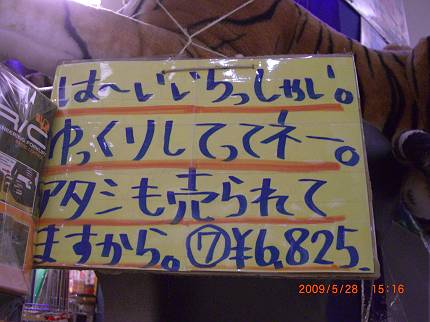 は〜いいらっしゃい。
ゆっくりしてってネー。
アタシも売られて
ますから。⑦¥6,825.
2009/5/28 15:16